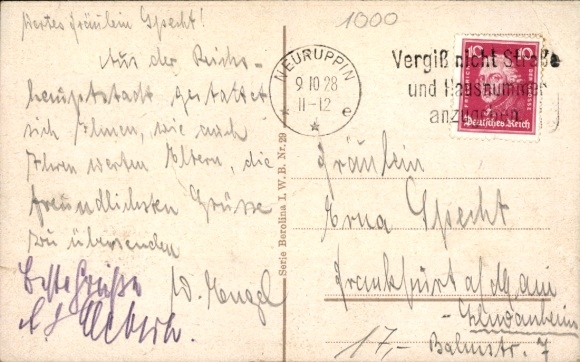 Wertes Fräulein Specht!
Aus der Reichs-
hauptstadt gestattet
sich Ihnen, wie auch
Ihren werten Eltern, die
freundlichsten Grüsse
zu übersenden
W. Mengel
Beste Grüße
1000
NEURUPPIN
9.10.28
11-12
e
Vergiß nicht Straße
und Hausnummer
anzugeben
10 10
Deutsches Reich
Serie Berolina I. W. B. Nr. 29
Fräulein
Erna Specht
Frankfurt a/Main
17,-